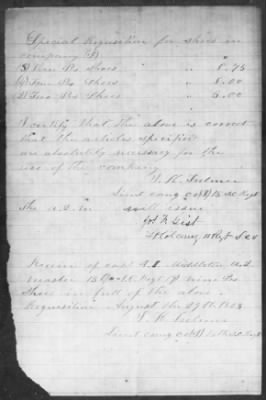 Special Requisition for shoes in
company D
Prs Shoes " 8.75
Prs Shoes " 8.00
Two Prs Shoes " 5.00
I certify that the above is correct
that the articles specified
are absolutely necessary for the
use of the company
Lieut comg co D 15 SC Regt
The A.Q.M. will issue
Jos F. Gist
Lt Col comg 15 Regt S.C.V
of capt Middleton
master 15 Regt of nine Prs
Shoes in full of the above
Requisition August the 29th 1863
Lieut comg co D 15th SC Regt